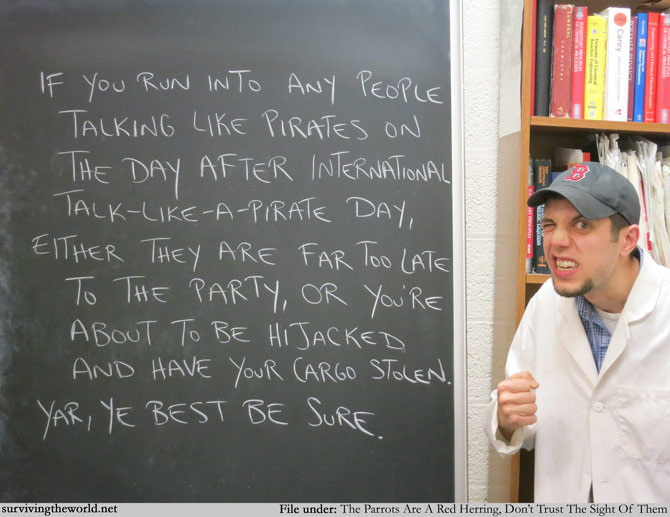 IF YOU RUN INTO ANY PEOPLE
TALKING LIKE PIRATES ON
THE DAY AFTER INTERNATIONAL
TALK-LIKE-A-PIRATE DAY,
EITHER THEY ARE FAR TOO LATE
TO THE PARTY, OR YOU'RE
ABOUT TO BE HIJACKED
AND HAVE YOUR CARGO STOLEN.
YAR, YE BEST BE SURE.
Carey
B
survivingtheworld.net
File under: The Parrots Are A Red Herring, Don't Trust The Sight Of Them